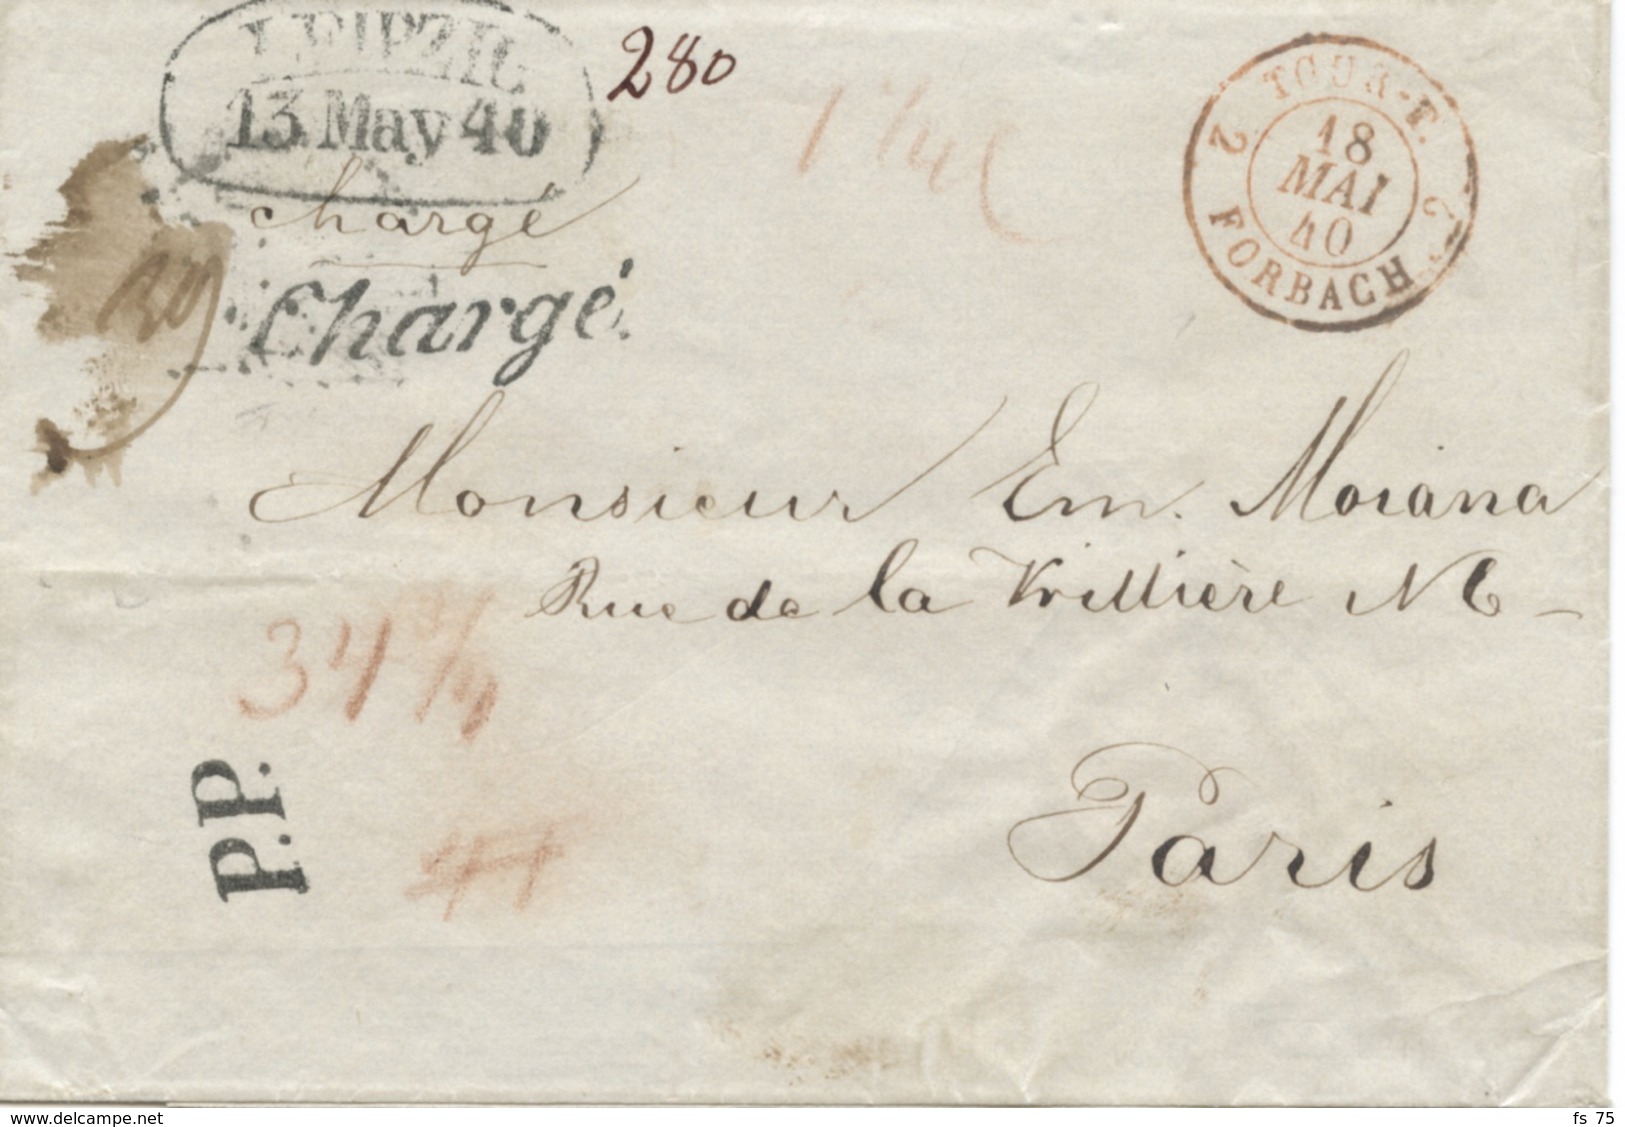 LEIPZIG
13 May 40
280
chargé
Chargé.
TOUR-T.
18
MAI
40
2 FORBACH 2
Monsieur Em. Moiana
Rue de la Vrillière N 6 -
34 3/4
P.P.
Paris
www.delcampe.net
fs 75